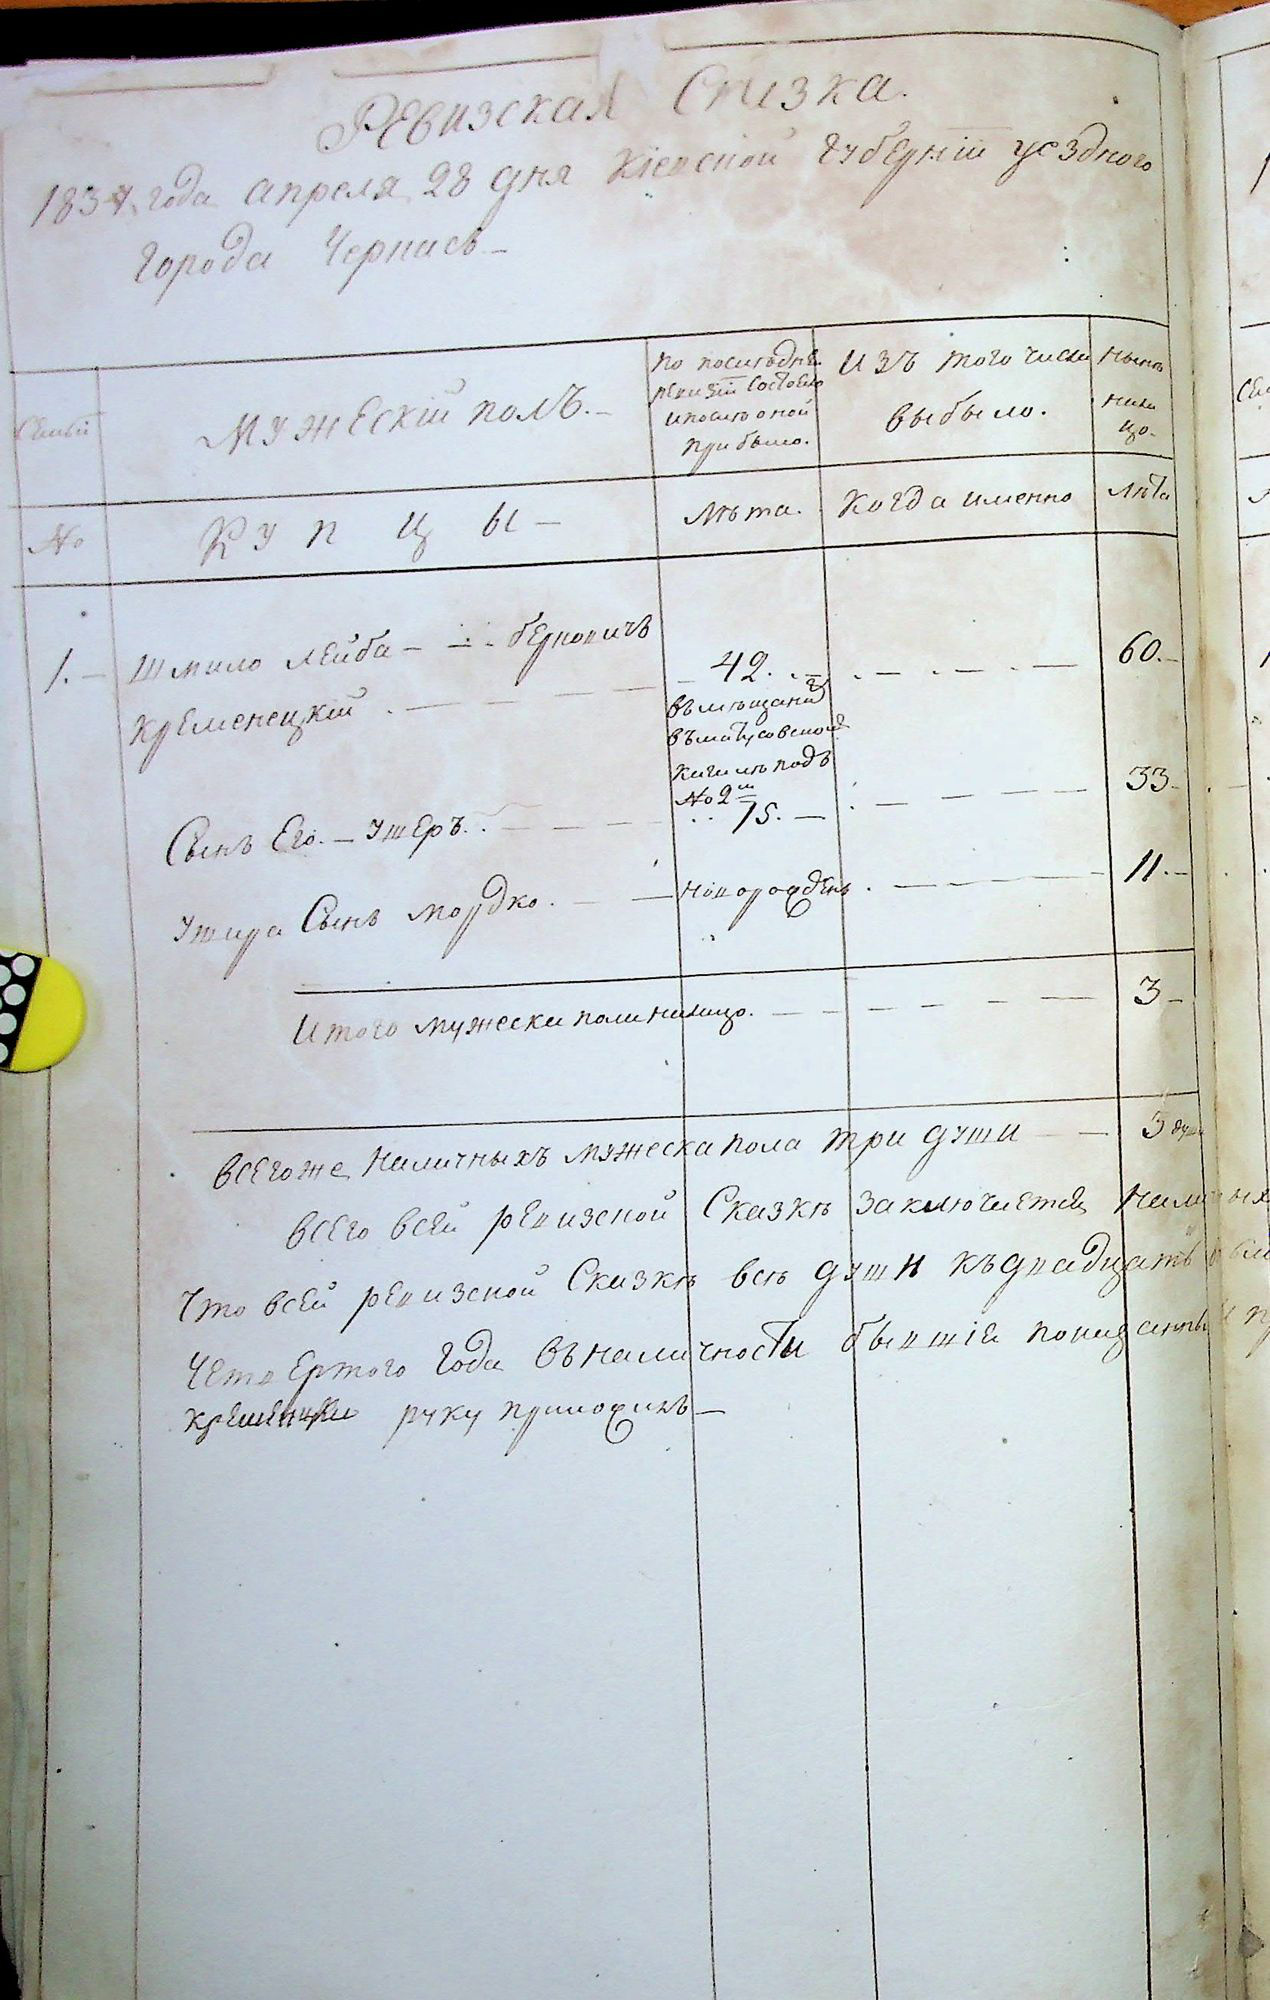 Ревизская Сказка.
1834 года апреля 28 дня Кіевской губерніи уезднаго
города Черкасъ
Семьи
Мужескій полъ.
По последней
ревизіи состояло
и после оной
прибыло.
Изъ того числа
выбыло.
Ныне
нали
цо.
№
Купцы
Лѣта.
Когда именно
Лѣта
1. Шмило Лейба Берковичъ
Кременецкій
42.
60.
въ мещанѣ
Кагалѣ подъ
№ 2м
Сынъ Его Ушеръ.
15.
33
Ушера Сынъ Мордко.
новорожденъ
11.
Итого мужеска пола налицо.
3
Всегоже наличныхъ мужеска пола три души
3 души
Всего всей ревизской Сказкѣ заключается
Что всей ревизской Сказкѣ всѣ души къ двадцать
четвертого года въ наличности бывшія показанны
руку приложилъ